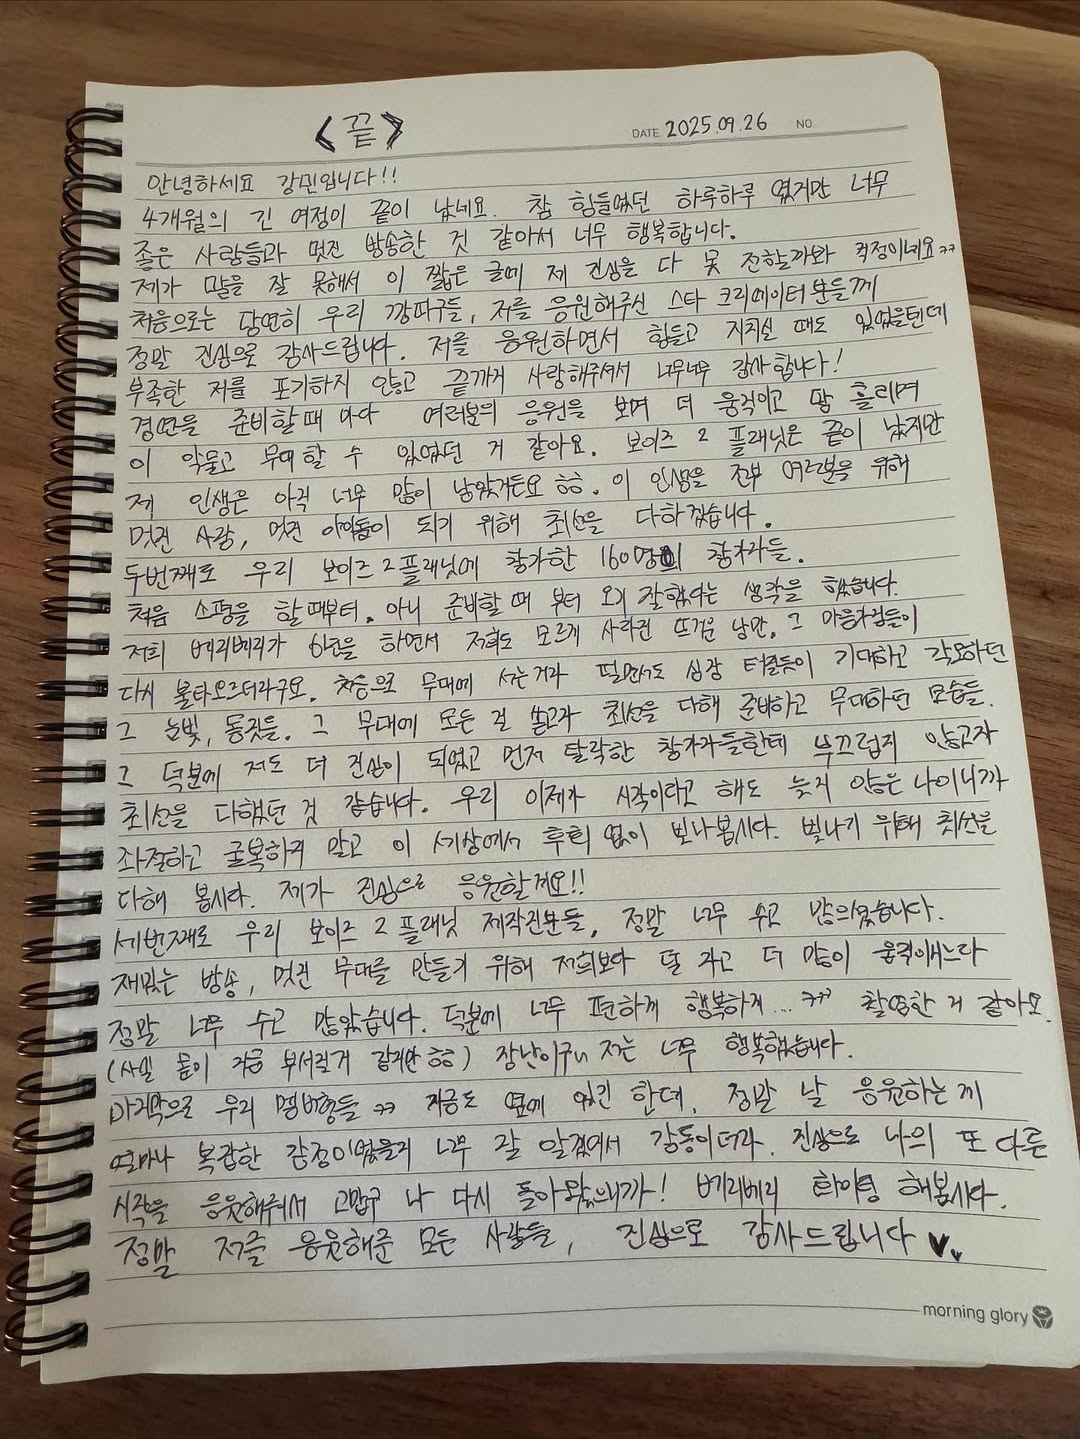 <끝>
DATE. 2025.09.26 NO.
안녕하세요 강민입니다!!
4개월의 긴 여정이 끝이 났네요. 참 힘들었던 하루하루 였지만 너무
좋은 사람들과 멋진 방송한 것 같아서 너무 행복합니다.
제가 말을 잘 못해서 이 짧은 글에 제 진심을 다 못 전할까봐 걱정이네요ㅋㅋ
처음으로는 당연히 우리 깡파구들, 저를 응원해주신 스타 크리에이터분들께
정말 진심으로 감사드립니다. 저를 응원하면서 힘들고 지치실 때도 있었을텐데
부족한 저를 포기하지 않고 끝까지 사랑해주셔서 너무너무 감사합니다!
경연을 준비할때 마다 여러분의 응원을 보며 더 움직이고 땀 흘리며
이 악물고 무대할 수 있었던 거 같아요. 보이즈 2 플래닛은 끝이 났지만
제 인생은 아직 너무 많이 남았거든요 ㅎㅎ. 이 인생을 전부 여러분을 위해
멋진 사람, 멋진 아이돌이 되기 위해 최선을 다하겠습니다.
두번째로 우리 보이즈 2 플래닛에 참가한 160명의 참가자들.
처음 소평을 할때부터. 아니 준비할 때 부터 오기 잘했다는 생각을 했습니다.
저희 베리베리가 6년을 하면서 저희도 모르게 사라진 뜨거운 낭만, 그 마음가짐들이
다시 불타오르더라구요. 처음으로 무대에 서는거라 떨면서도 심장 터질듯이 기대하고 각오하던
그 눈빛, 몸짓들. 그 무대에 모든 걸 쏟고자 최선을 다해 준비하고 무대하던 모습들.
그 덕분에 저도 더 진심이 되었고 먼저 탈락한 참가자들한테 부끄럽지 않고자
최선을 다했던 것 같습니다. 우리 이제가 시작이라고 해도 늦지 않은 나이니까
좌절하고 굴복하지 말고 이 세상에서 후회 없이 보내봅시다. 빛나기 위해 최선을
다해 봅시다. 제가 진심으로 응원할게요!!
세번째로 우리 보이즈 2 플래닛 제작진분들, 정말 너무 수고 많으셨습니다.
재밌는 방송, 멋진 무대를 만들기 위해 저희보다 덜 자고 더 많이 움직이시느라
정말 너무 수고 많았습니다. 덕분에 너무 편하게 행복하게... ㅋㅋ 촬영한 거 같아요.
(사실 몸이 조금 부서질거 같지만 ㅎㅎ) 장난이구 저는 너무 행복했습니다.
마지막으로 우리 멤버형들 ㅋㅋ 지금도 옆에 있긴 한데, 정말 날 응원하는게
얼마나 복잡한 감정이었을지 너무 잘 알겠어서 감동이더라. 진심으로 나의 또 다른
시작을 응원해줘서 고맙구 나 다시 돌아왔으니까! 베리베리 화이팅 해봅시다.
정말 저를 응원해준 모든 사람들, 진심으로 감사드립니다 ♥♥
morning glory